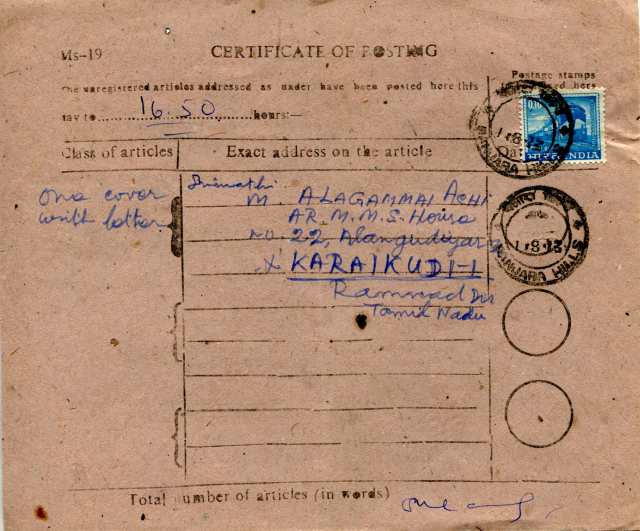 Ms-19 CERTIFICATE OF POSTING
Postage stamps
The unregistered articles addressed as under have been posted here this
day to 16.50 hours:—
0.10
भारत INDIA
BANJARA HILLS
Class of articles Exact address on the article
one cover
with letter
Srimathi
M. ALAGAMMAI ACHI
AR. M. M. S. House
NO. 22, Alangudiyar
KARAIKUDI-1
Ramnad Dis
Tamil Nadu
BANJARA HILLS
Total number of articles (in words) one only